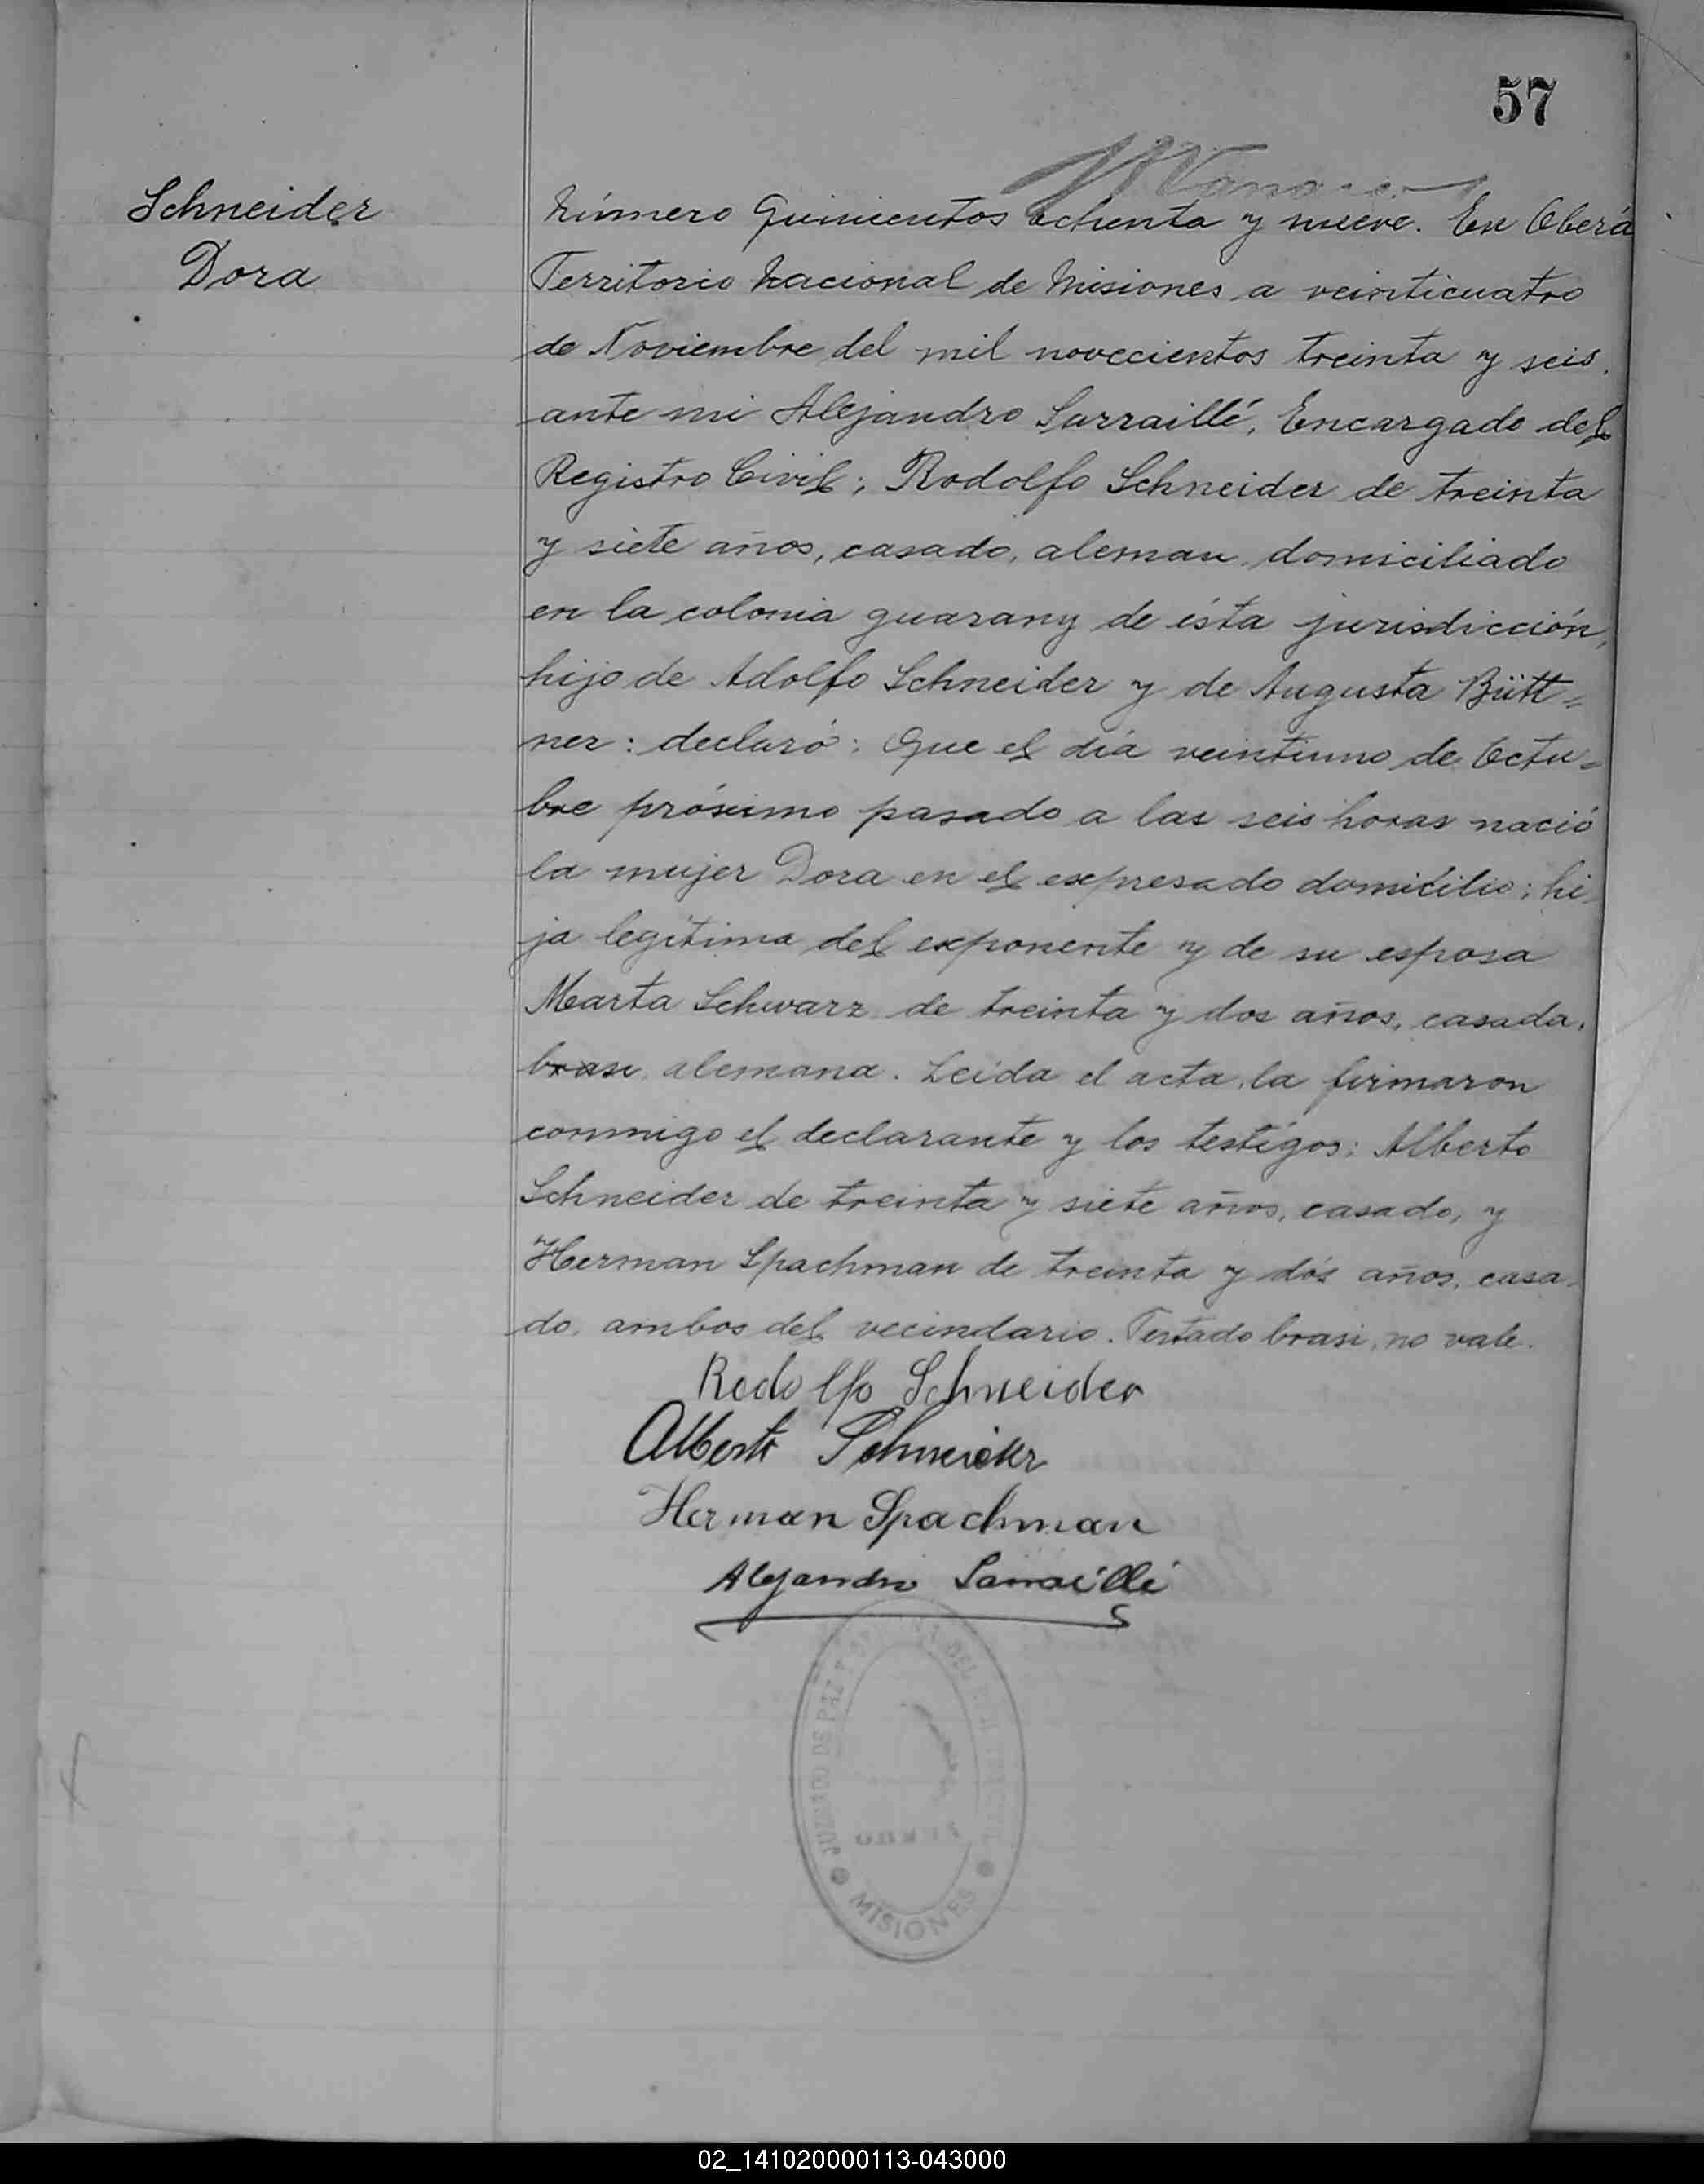 57
Schneider
Dora
Número Quinientos ochenta y nueve. En Oberá
Territorio Nacional de Misiones a veinticuatro
de Noviembre del mil novecientos treinta y seis.
ante mi Alejandro Sarraillé, Encargado del
Registro Civil; Rodolfo Schneider de treinta
y siete años, casado, aleman, domiciliado
en la colonia guarany de ésta jurisdicción,
hijo de Adolfo Schneider y de Augusta Bütt=
ner: declaró: Que el día veintiuno de Octu=
bre próximo pasado a las seis horas nació
la mujer Dora en el expresado domicilio; hi-
ja legítima del exponente y de su esposa
Marta Schwarz de treinta y dos años, casada,
brasi alemana. Leída el acta, la firmaron
conmigo el declarante y los testigos: Alberto
Schneider de treinta y siete años, casado, y
Herman Spachman de treinta y dós años, casa-
do, ambos del vecindario. Testado brasi, no vale.
Rodolfo Schneider
Alberto Schneider
Herman Spachman
Alejandro Sarraillé
JUZGADO DE PAZ Y
DEL
MISIONES
02_141020000113-043000